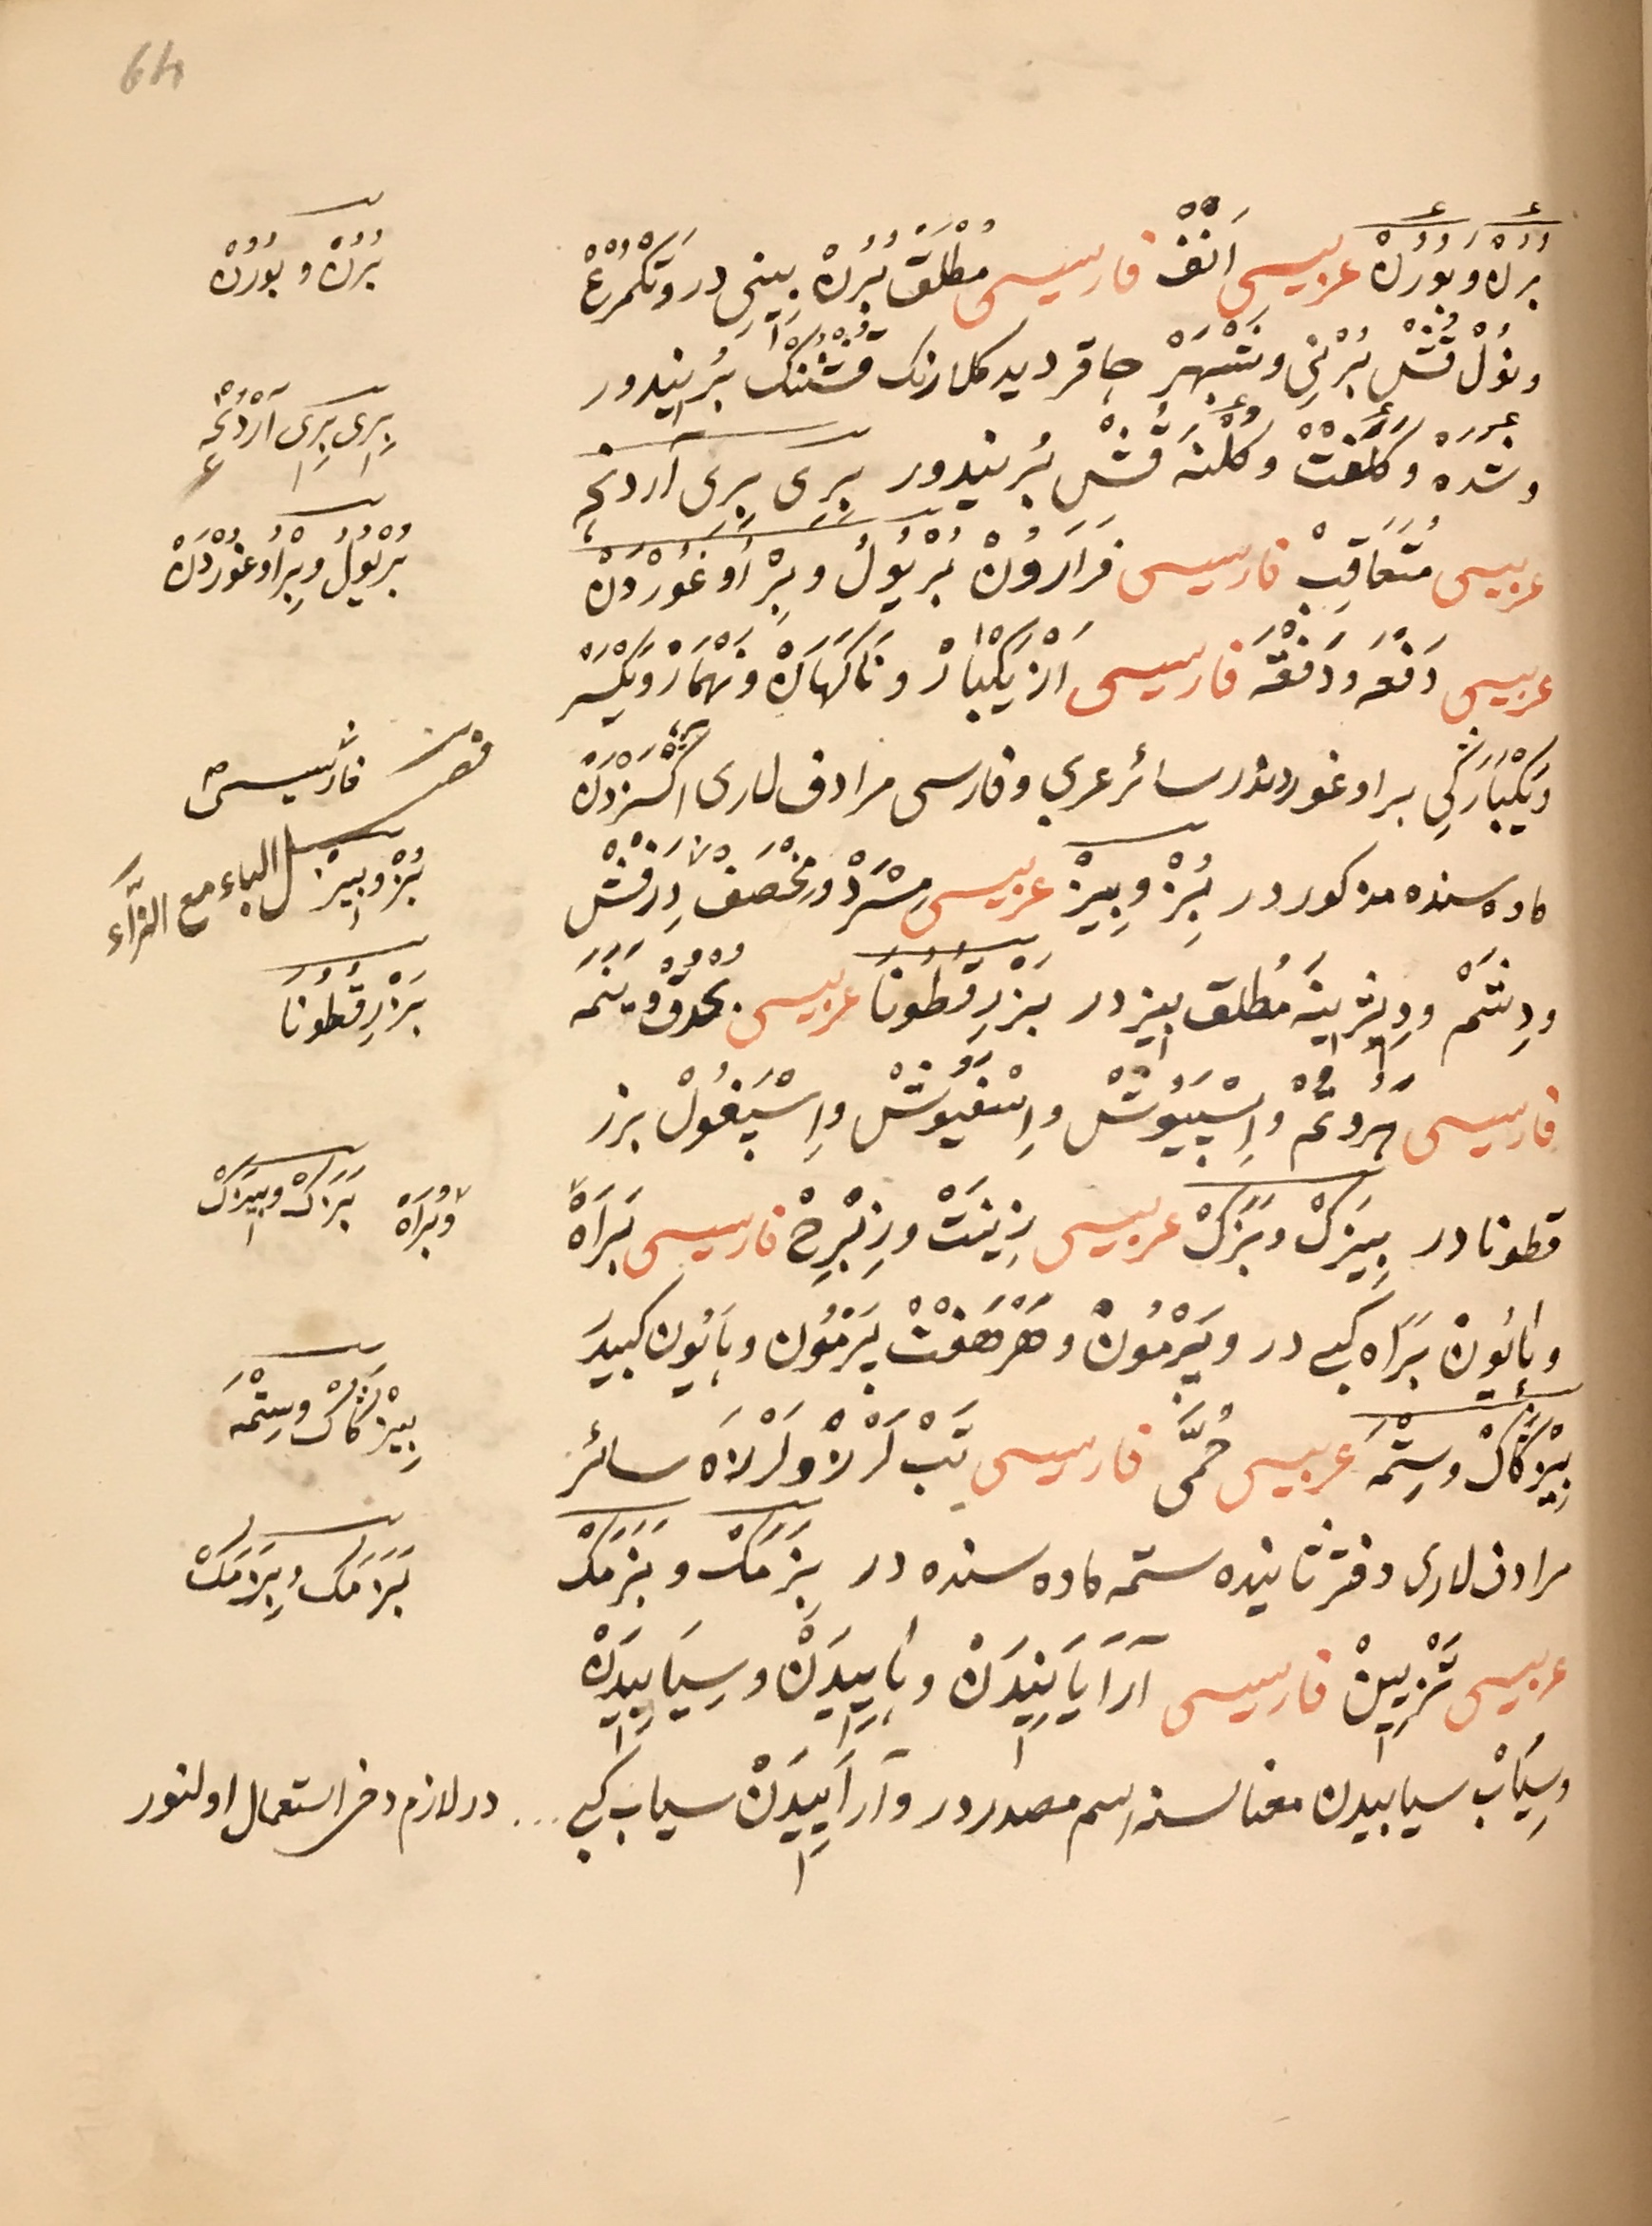 64
بُرُنْ وبُورُنْ عربیسی اَنْفْ فارسیسی مُطْلَقْ بُرُنْ بِینِی در وتکمرغ
ونُولْ قُشْ بُرْنِی وشَبْهَرْ چاقر دیدکلارنک قُشْنُنْکْ بُرُنِیدور
وشده وکَلَفْتْ وکُلْنَه قُشْ بُرنیدور بِرِی بِرِی آردنجه
عربیسی مُتَعَاقِبْ فارسیسی فَرَارَوُنْ بُرْیُولُ وبِرْ اُوغُورْدَنْ
عربیسی دَفْعَه ودَفْعَةً فارسیسی اَزْیَکْبَارْ ونَاکَهَانْ ونَهْمَارْ ویَکْسَرْ
ویَکْبَارَکِی براوغوردندر سائر عربی وفارسی مرادف لاری اکسزدن
ماده سنده مذکوردر بُزْ وبِیزْ عربیسی مِسْرَدْ ومِخْصَفْ دِرَفْشْ
ودِشَمْ ودِیزِینَه مُطلق بیزدر بَزْرِقَطُونَا عربیسی بُحْدُقْ ویَنَمَه
فارسیسی بَرُوتُمْ واِسْبَیُوشْ واِسْفَیُوشْ واِسْبَغُولْ بزر
قطونادر بِیزَکْ وبَزَکْ عربیسی زِینَتْ وزِبْرِجْ فارسیسی بَرَاهْ
وبَایُونْ بَرَاه کبی در ویَرْمُونْ وهَرْهَفْتْ یَرْمُون وبَایُون کبیدر
بِیزْکَاکْ وسِتْمَه عربیسی حُمَّی فارسیسی تَبْ لَرْزْ ولَرْزَه سائر
مرادف لاری دفتر ثانیده ستمه ماده سنده در بَزَمَکْ وبِزَمَکْ
عربیسی تَزْیِینْ فارسیسی آرَایَانِیدَنْ وبَایِیدَنْ وسِیَابِیدَنْ
وسِیَابْ سیابیدن معناسنه اسم مصدردر وآرَایِیدَنْ سیاب کبی ... در لازم دخی استعمال اولنور
بُرُنْ وبُورُنْ
بِرِی بِرِی آرْدِنْجَه
بُرْیُولُ وبِرْاُوغُورْدَنْ
فصل الباء مع الزاء
فارسیسی
بُزْ وبِیزْ
بَزْرِقَطُونَا
وبَرَاهْ
بَزَکْ وبِیزَکْ
بِیزْکَاکْ وسِتْمَه
بَزَمَکْ وبِزَمَکْ